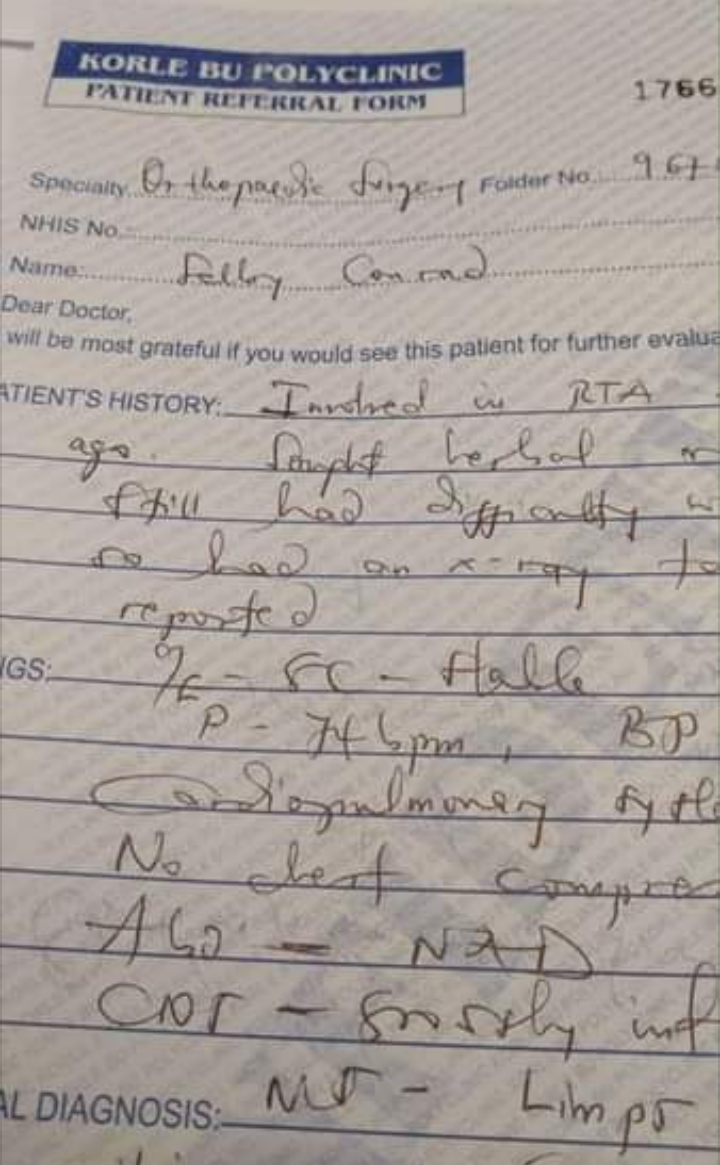 KORLE BU POLYCLINIC
PATIENT REFERRAL FORM
1766
Specialty Orthopaedic Surgery Folder No. 967
NHIS No.
Name: Conrad
Dear Doctor,
will be most grateful if you would see this patient for further evalua
ATIENT'S HISTORY: Involved in RTA
ago. Sought herbal
still had difficulty w
so had an x-ray
reported
NGS: O/E - Stable
P - 74bpm, BP
Cardiopulmonary syst
No chest compres
Abd - NAD
CNS - Grossly int
AL DIAGNOSIS: MS - Limps